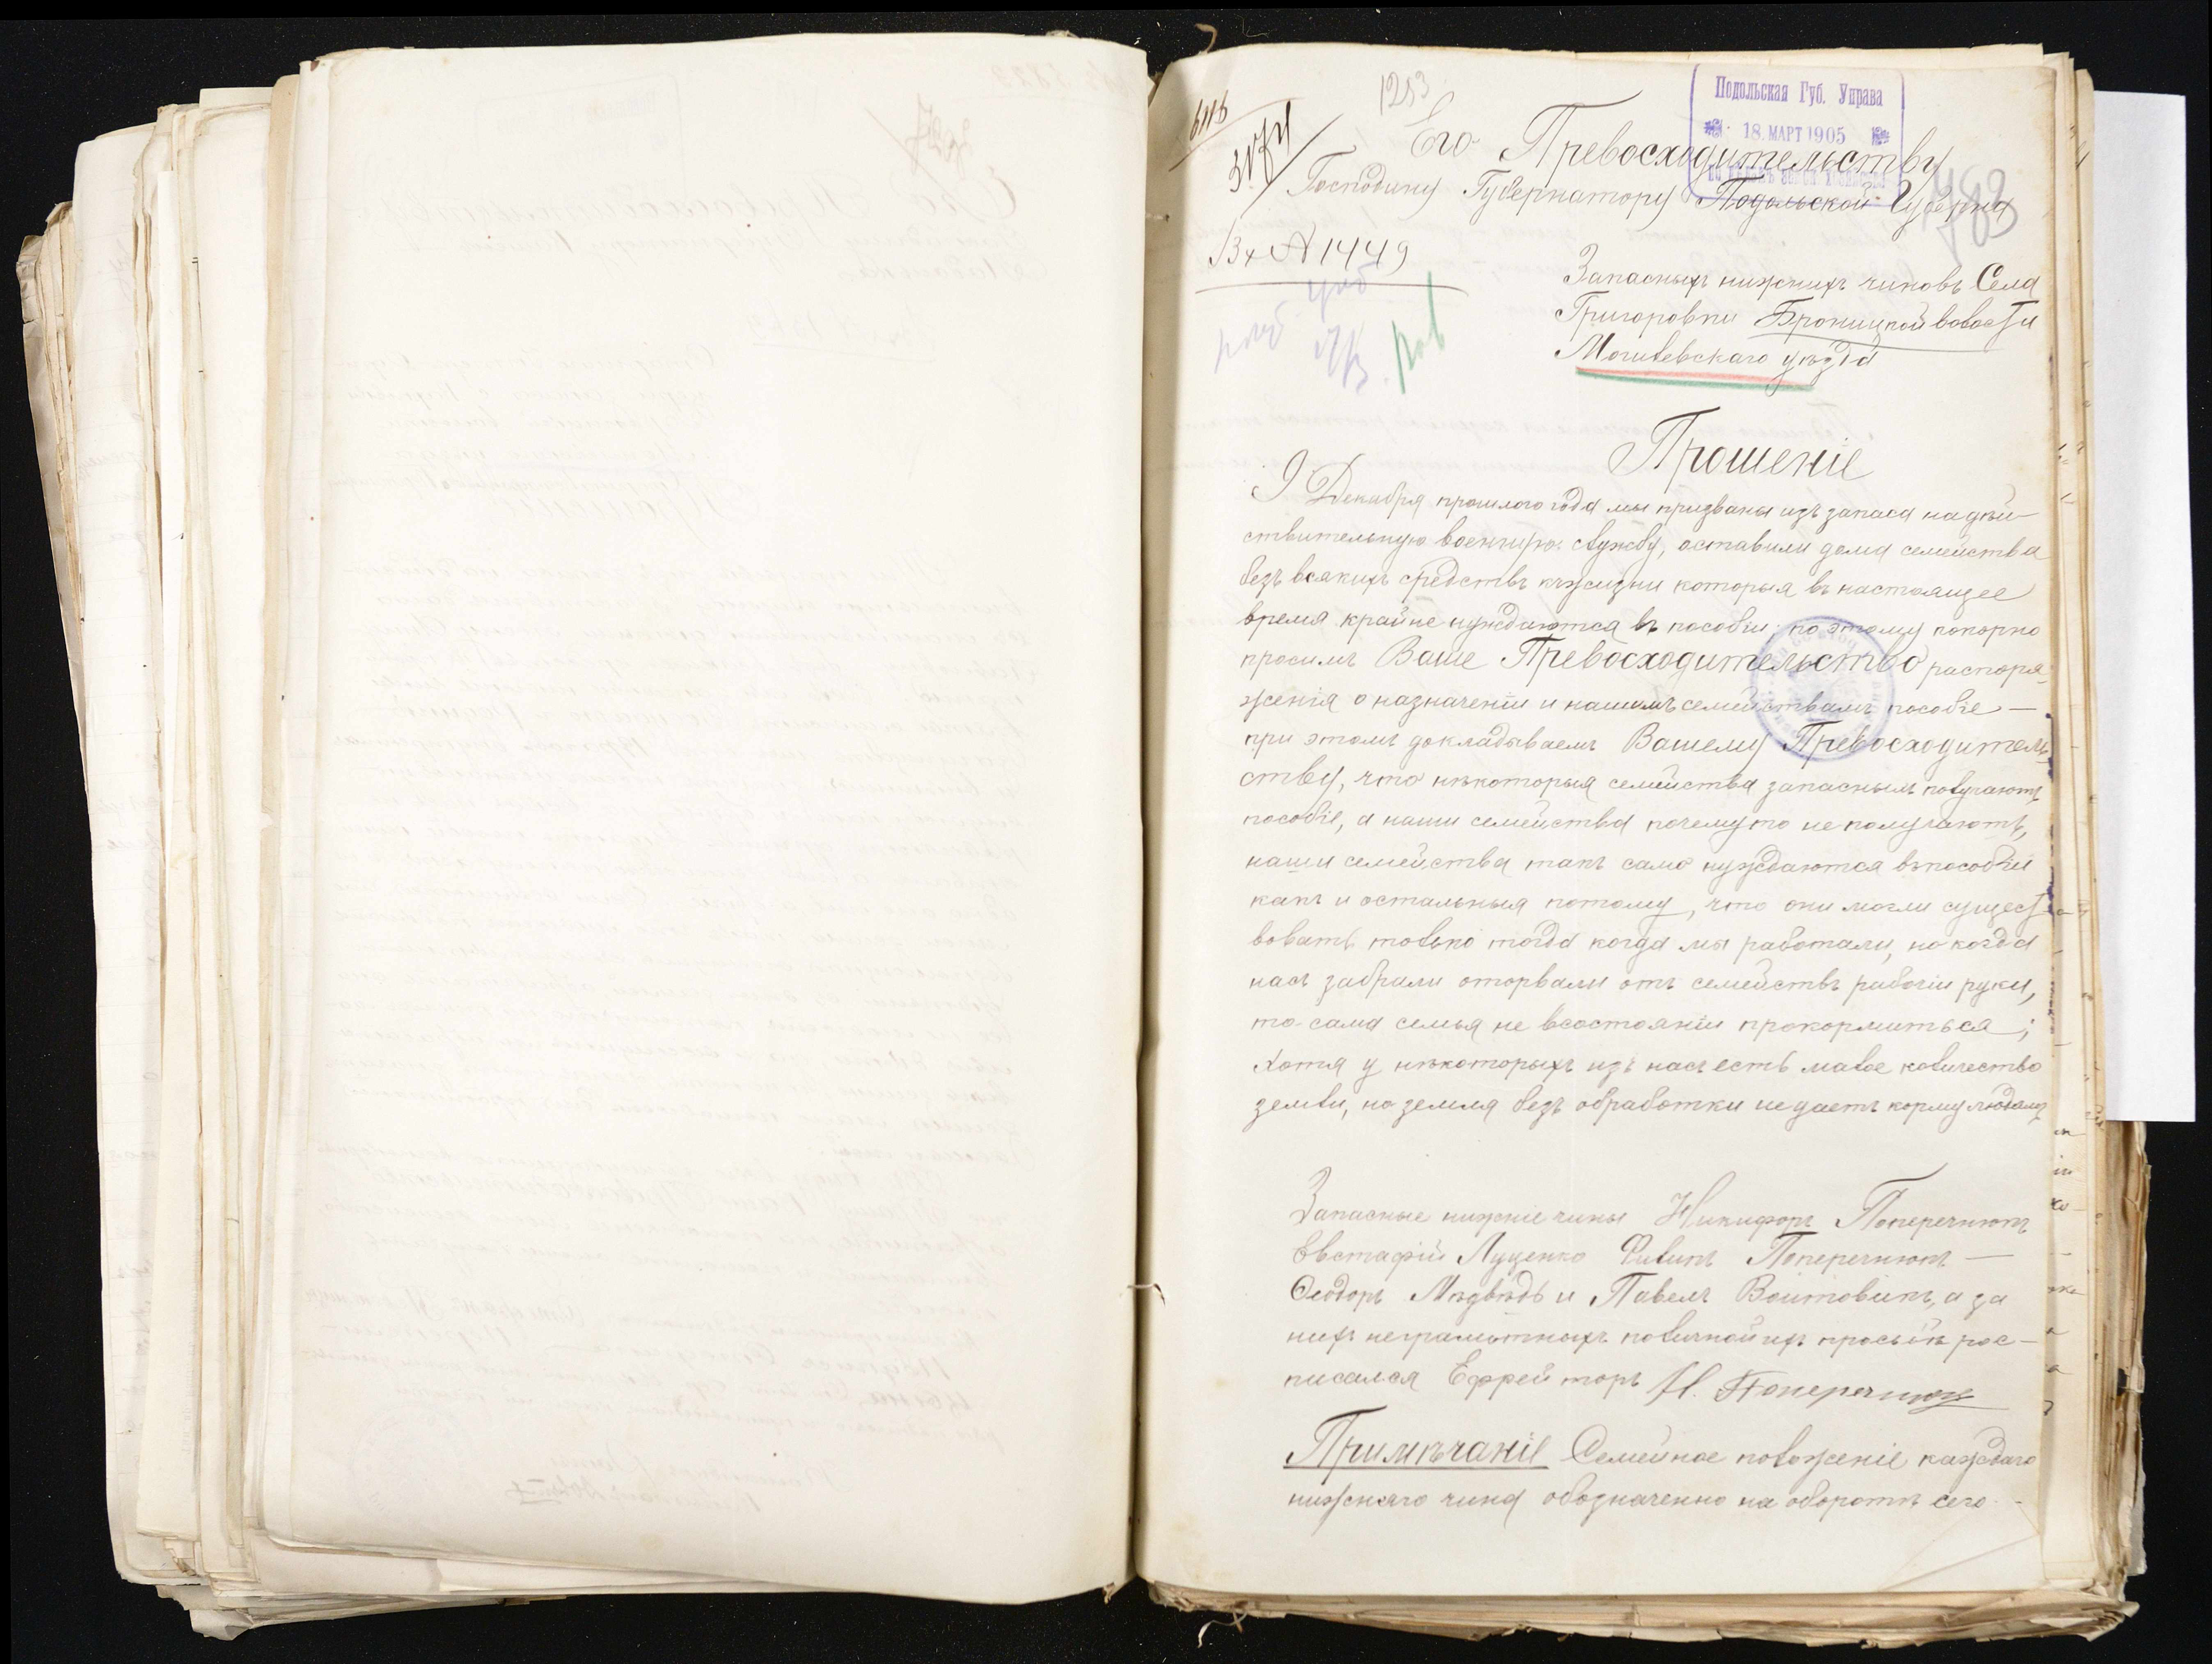 1253
6116
3174
Подольская Губ. Управа
18. МАРТ 1905
Его Превосходительству
Господину Губернатору Подольской Губерніи
Вх № 1449
Запасныхъ нижнихъ чиновъ Села
Григоровки Броницкой волости
Могилевскаго уѣзда
Прошеніе
9 Декабря прошлого года мы призваны изъ запаса на дѣй-
ствительную военную службу, оставили дома семейства
безъ всякихъ средствъ къ жизни которыя въ настоящее
время крайне нуждаются въ пособіи; по этому покорно
просимъ Ваше Превосходительство распоря-
женія о назначеніи и нашимъ семействамъ пособіе —
при этомъ докладываемъ Вашему Превосходитель-
ству, что нѣкоторыя семейства запаснымъ получаютъ
пособіе, а наши семейства почемуто не получаютъ,
наши семейства такъ само нуждаются въ пособіи
какъ и остальныя потому, что они могли сущест-
вовать только тогда когда мы работали, но когда
насъ забрали оторвали отъ семействъ рабочіи руки,
то сама семья не всостояніи прокормиться;
хотя у нѣкоторыхъ изъ насъ есть малое количество
земли, но земля безъ обработки не даетъ корму людямъ
Запасные нижніе чины Никифоръ Поперечнюкъ
Евстафій Луценко Филипъ Поперечнюкъ —
Ѳеодоръ Мѣдвѣдь и Павелъ Войтовикъ, а за
нихъ неграмотныхъ по личной ихъ просьбѣ рос-
писался Ефрейторъ Н. Поперечнюкъ
Примѣчаніе Семейное положеніе каждаго
нижняго чина обозначенно на оборотѣ сего -